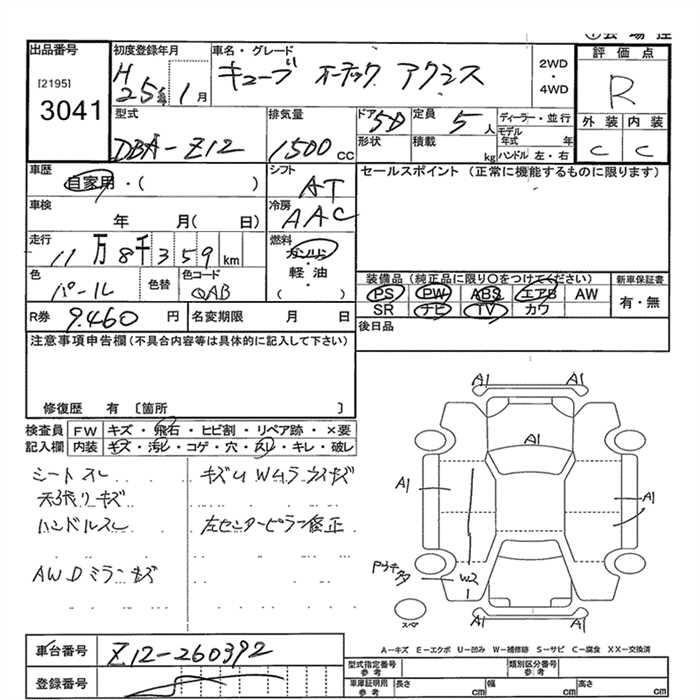 出品番号
[2195]
3041
初度登録年月
H25年 1月
車名・グレード
キューブ オーテック アクシス
2WD・4WD
評価点
R
外装 内装
C C
型式
DBA-Z12
排気量
1500 cc
ドア 5D
形状
定員 5 人
積載 kg
ディーラー・並行
モデル年式 年
ハンドル 左・右
車歴
自家用・( )
シフト
AT
セールスポイント (正常に機能するものに限ります)
車検
年 月( 日)
冷房
AAC
走行
11万8千359km
燃料
ガソリン
軽油
( )
色
パール
色替
色コード
QAB
装備品(純正品に限り○をつけてください)
PS PW ABS エアB AW
SR ナビ TV カワ
新車保証書
有・無
R券 9.460 円
名変期限 月 日
後日品
注意事項申告欄(不具合内容等は具体的に記入して下さい)
修復歴 有 〔箇所 〕
検査員記入欄
FW キズ・飛石・ヒビ割・リペア跡・×要
内装 キズ・汚レ・コゲ・穴・スレ・キレ・破レ
シートスレ
天張りキズ
ハンドルスレ
AWDミラーキズ
キズU Wムラ ライトキズ
左センターピラー修正
A1 A1
A1
A1 A1
W2
A1 A1
スペ
A-キズ E-エクボ U-凹み W-補修跡 S-サビ C-腐食 XX-交換済
車台番号
Z12-260392
登録番号
型式指定番号 参考
類別区分番号 参考
車庫証明用 参考
長さ cm
幅 cm
高さ cm